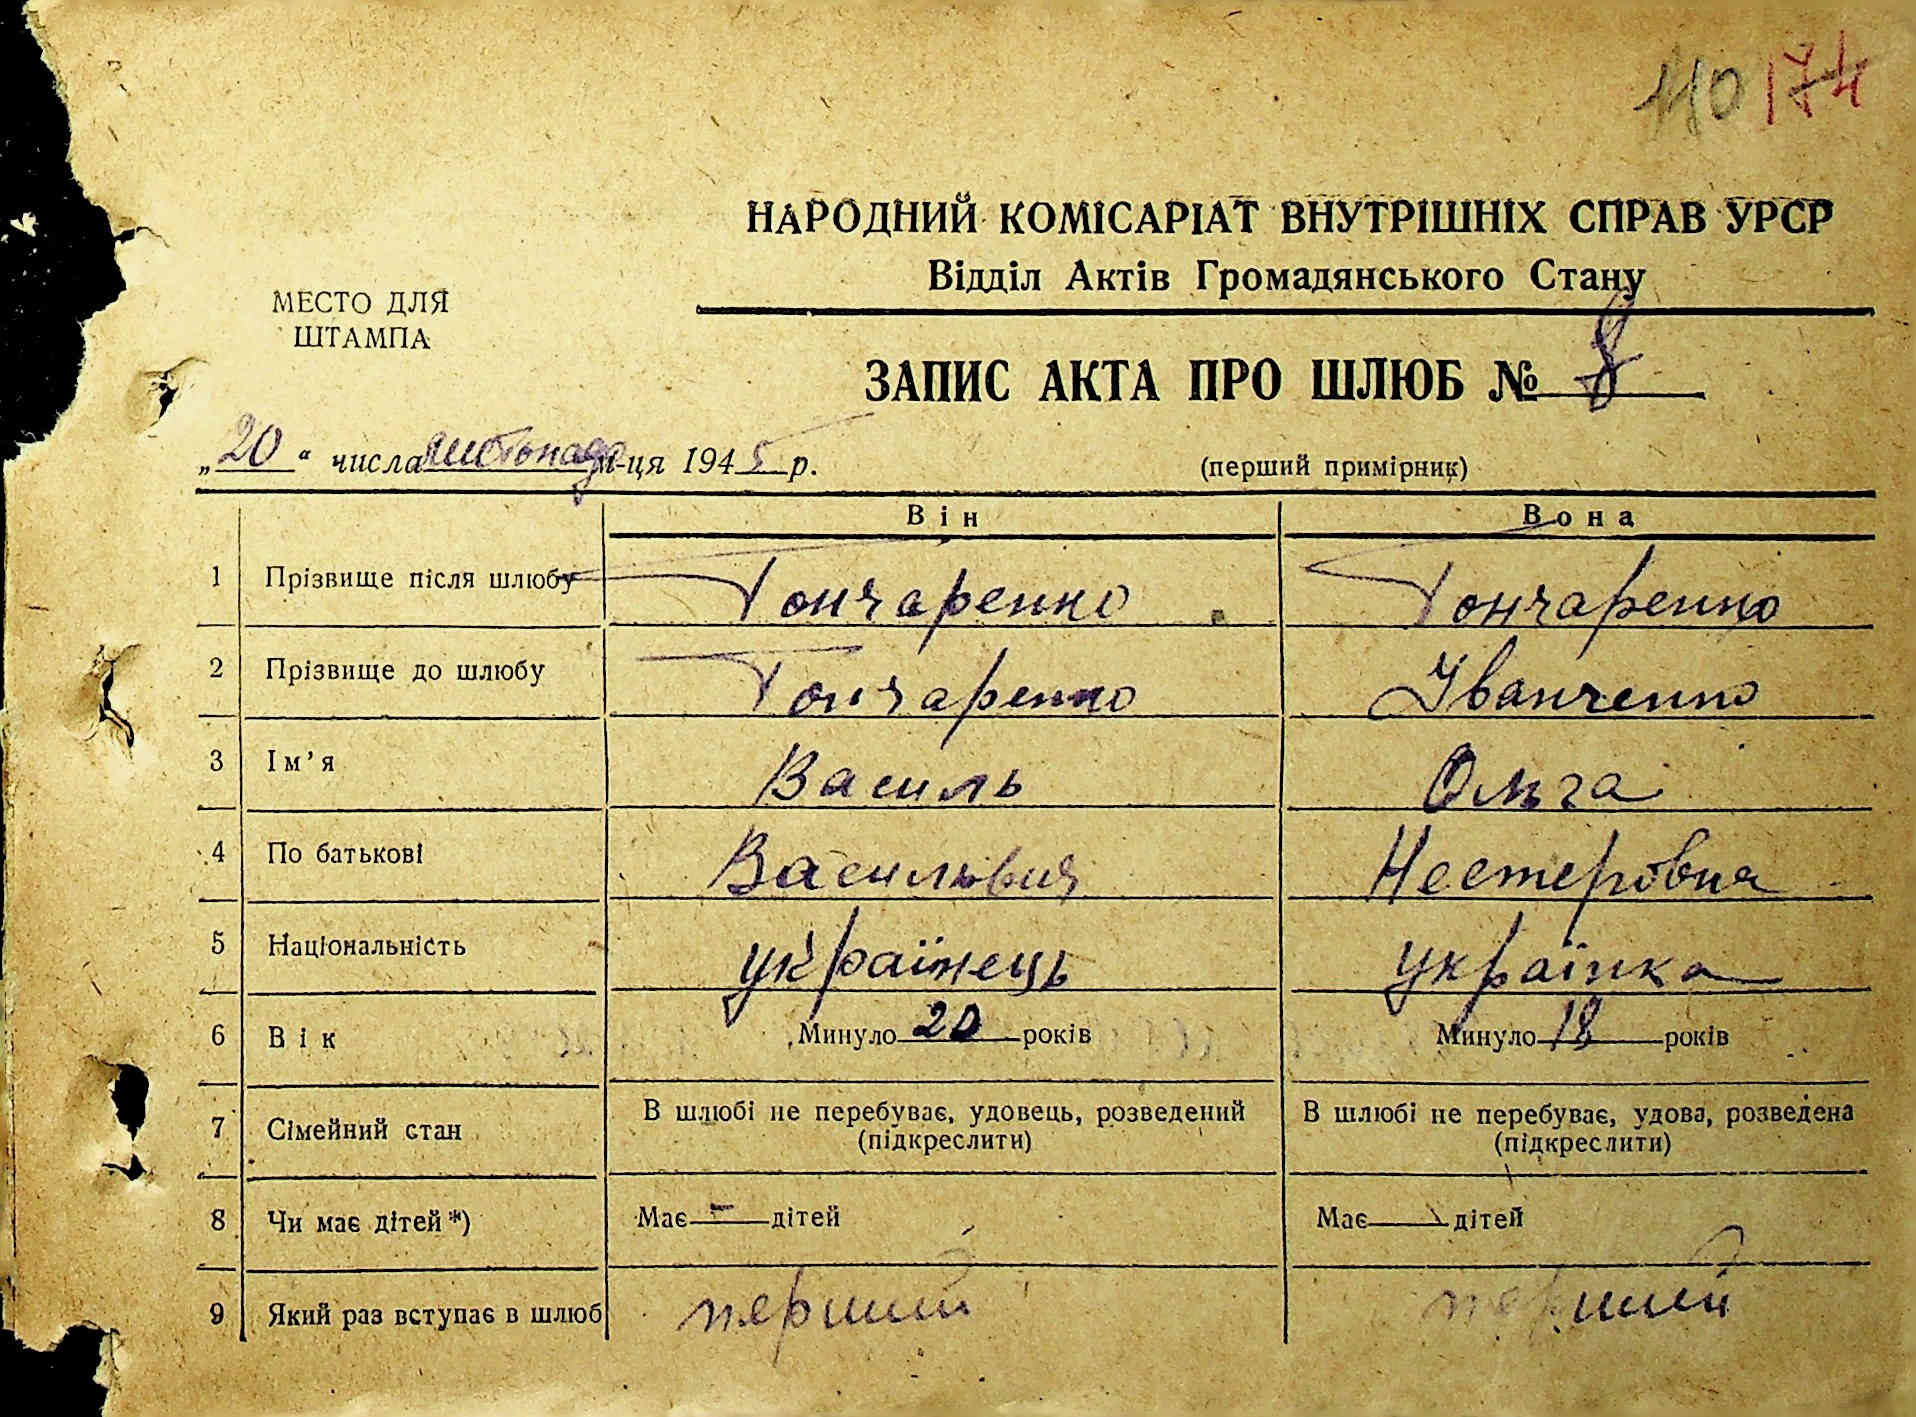 110 174
НАРОДНИЙ КОМІСАРІАТ ВНУТРІШНІХ СПРАВ УРСР
Відділ Актів Громадянського Стану
МЕСТО ДЛЯ
ШТАМПА
ЗАПИС АКТА ПРО ШЛЮБ № 8
„20" числа листопада м-ця 1945 р.
(перший примірник)
Він Вона
1 Прізвище після шлюбу Гончаренко Гончаренко
2 Прізвище до шлюбу Гончаренко Іванченко
3 Ім'я Василь Ольга
4 По батькові Васильвич Нестеровна
5 Національність українець українка
6 Вік Минуло 20 років Минуло 18 років
7 Сімейний стан В шлюбі не перебуває, удовець, розведений (підкреслити) В шлюбі не перебуває, удова, розведена (підкреслити)
8 Чи має дітей*) Має — дітей Має дітей
9 Який раз вступає в шлюб перший перший